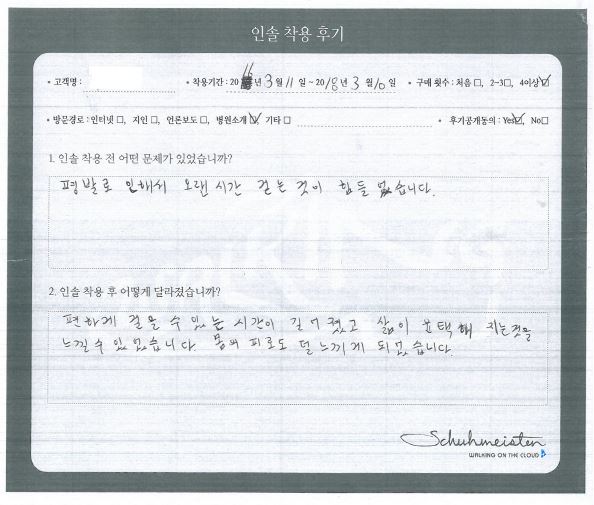 인솔 착용 후기
• 고객명 : • 착용기간 : 20 년 3 월 11 일 ~ 2018 년 3 월 10 일 • 구매 횟수 : 처음 □, 2~3 □, 4이상 ☑
• 방문경로 : 인터넷 □, 지인 □, 언론보도 □, 병원소개 ☑, 기타 □ • 후기공개동의 : Yes ☑, No □
1. 인솔 착용 전 어떤 문제가 있었습니까?
평발로 인해서 오랜 시간 걷는 것이 힘들 었습니다.
2. 인솔 착용 후 어떻게 달라졌습니까?
편하게 걸을 수 있는 시간이 길어졌고 삶이 윤택해 지는것을
느낄수 있었습니다 몸의 피로도 덜 느끼게 되었습니다.
Schuhmeister
WALKING ON THE CLOUD